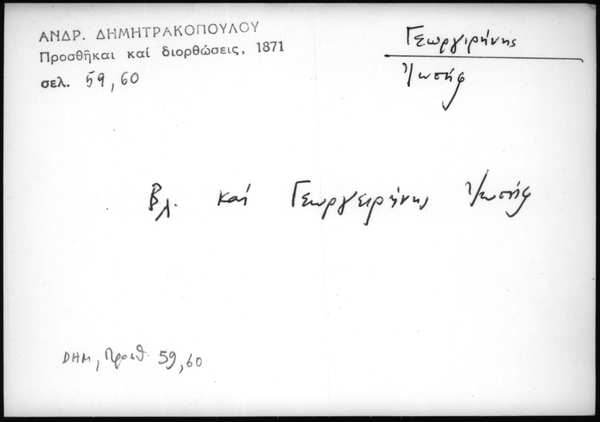 ΑΝΔΡ. ΔΗΜΗΤΡΑΚΟΠΟΥΛΟΥ
Προσθῆκαι καί διορθώσεις, 1871
σελ. 59, 60
Γεωργιρήνης
Ἰωσήφ
Βλ. καί Γεωργειρήνης Ἰωσήφ
ΔΗΜ, Προσθ. 59, 60